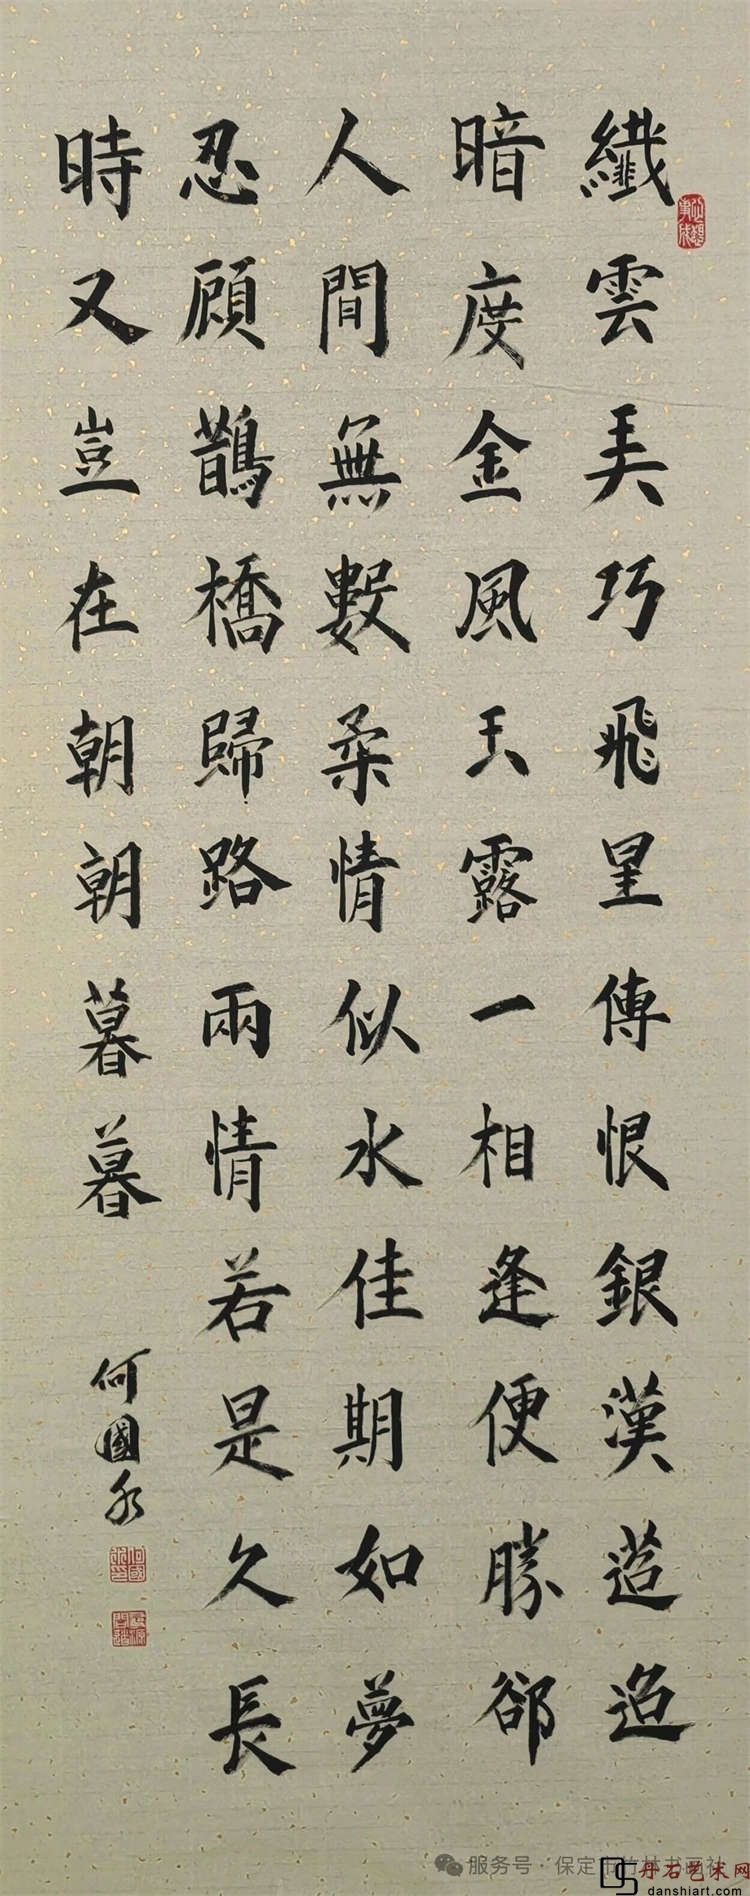 纖雲美巧飛星傳恨銀漢迢迢
暗度金風玉露一相逢便勝卻
人間無數柔情似水佳期如夢
忍顧鵲橋歸路兩情若是久長
時又豈在朝朝暮暮
何國永
服务号·保定市竹林书画社
丹石艺术网
danshiart.com